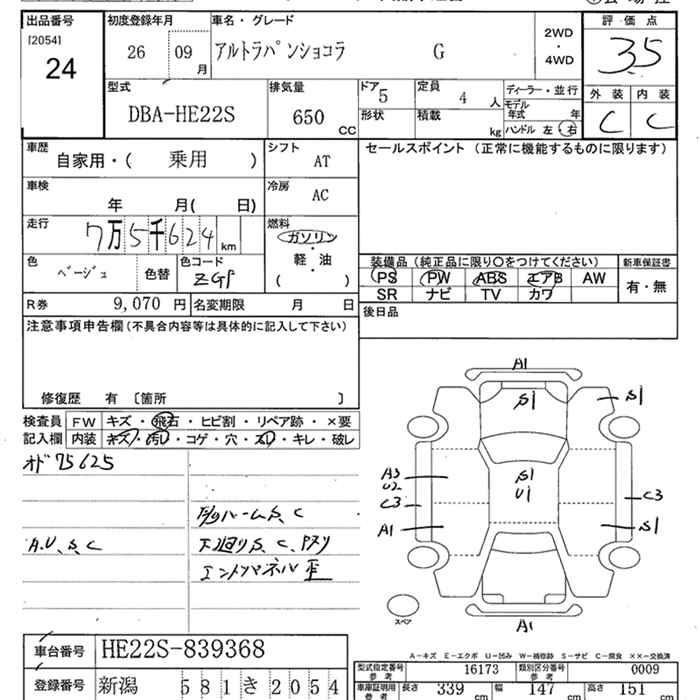 出品番号 初度登録年月 車名・グレード 評価点
[2054]
24
26 09 月 アルトラパンショコラ G
2WD
・
4WD
3.5
外装 内装
C C
型式 排気量 ドア 定員 ディーラー・並行
DBA-HE22S 650 CC 5 4 人
形状 積載 kg
モデル年式 年
ハンドル 左・右
車歴 シフト セールスポイント (正常に機能するものに限ります)
自家用・( 乗用 ) AT
車検 冷房
年 月( 日) AC
走行 燃料
7万5千624 km ガソリン
軽・油
( )
色 色コード
ベージュ 色替 ZGP
装備品 (純正品に限り○をつけてください) 新車保証書
PS PW ABS エアB AW
SR ナビ TV カワ 有・無
R券 9,070 円 名変期限 月 日
後日品
注意事項申告欄(不具合内容等は具体的に記入して下さい)
修復歴 有 [箇所 ]
検査員 FW キズ・飛石・ヒビ割・リペア跡・×要
記入欄 内装 キズ・汚レ・コゲ・穴・スリ・キレ・破レ
オド 75625
A.U、S、C
下廻りS、C、
A1
S1
S1
A3
U2
C3
A1
S1
U1
C3
S1
A1
スペア
車台番号 HE22S-839368
A－キズ E－エクボ U－凹み W－補修跡 S－サビ C－腐食 ××－交換済
登録番号 新潟 581 き 2054
型式指定番号 参考 16173 類別区分番号 参考 0009
車庫証明用 参考 長さ 339 cm 幅 147 cm 高さ 151 cm